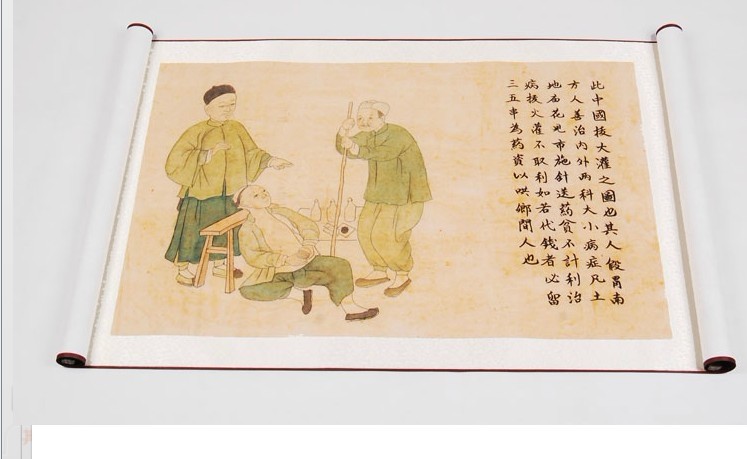 此中國拔火灌之圖也其人假冒南
方人善治内外两科大小病症凡土
地庙花児市施針送药貧不計利治
病拔火灌不取利如若代錢者必留
三五串為药資以哄鄉間人也